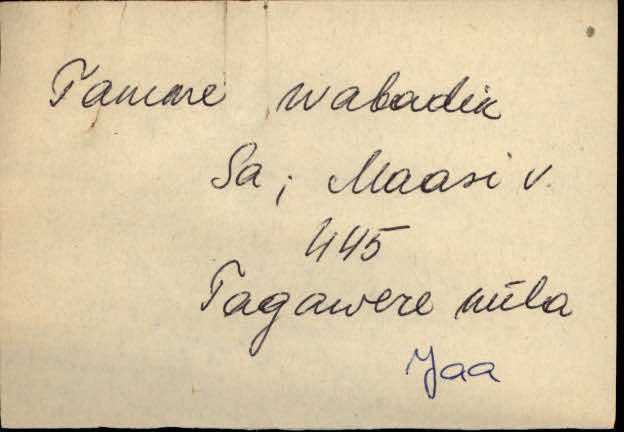 Tamme wabadik
Sa; Maasi v.
445
Tagawere küla
Jaa